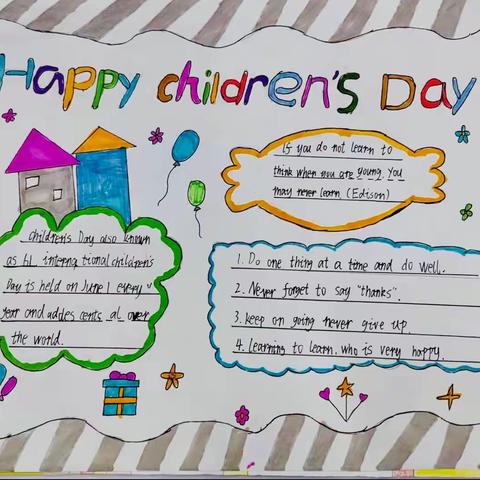 Happy children's Day
If you do not learn to
think when you are young. You
may never learn (Edison)
children's Day also known
as 61 international children's
Day is held on June 1 every
year and addles cents al over
the world.
1. Do one thing at a time and do well.
2. Never forget to say "thanks".
3. keep on going never give up.
4. learning to learn. who is very happy.